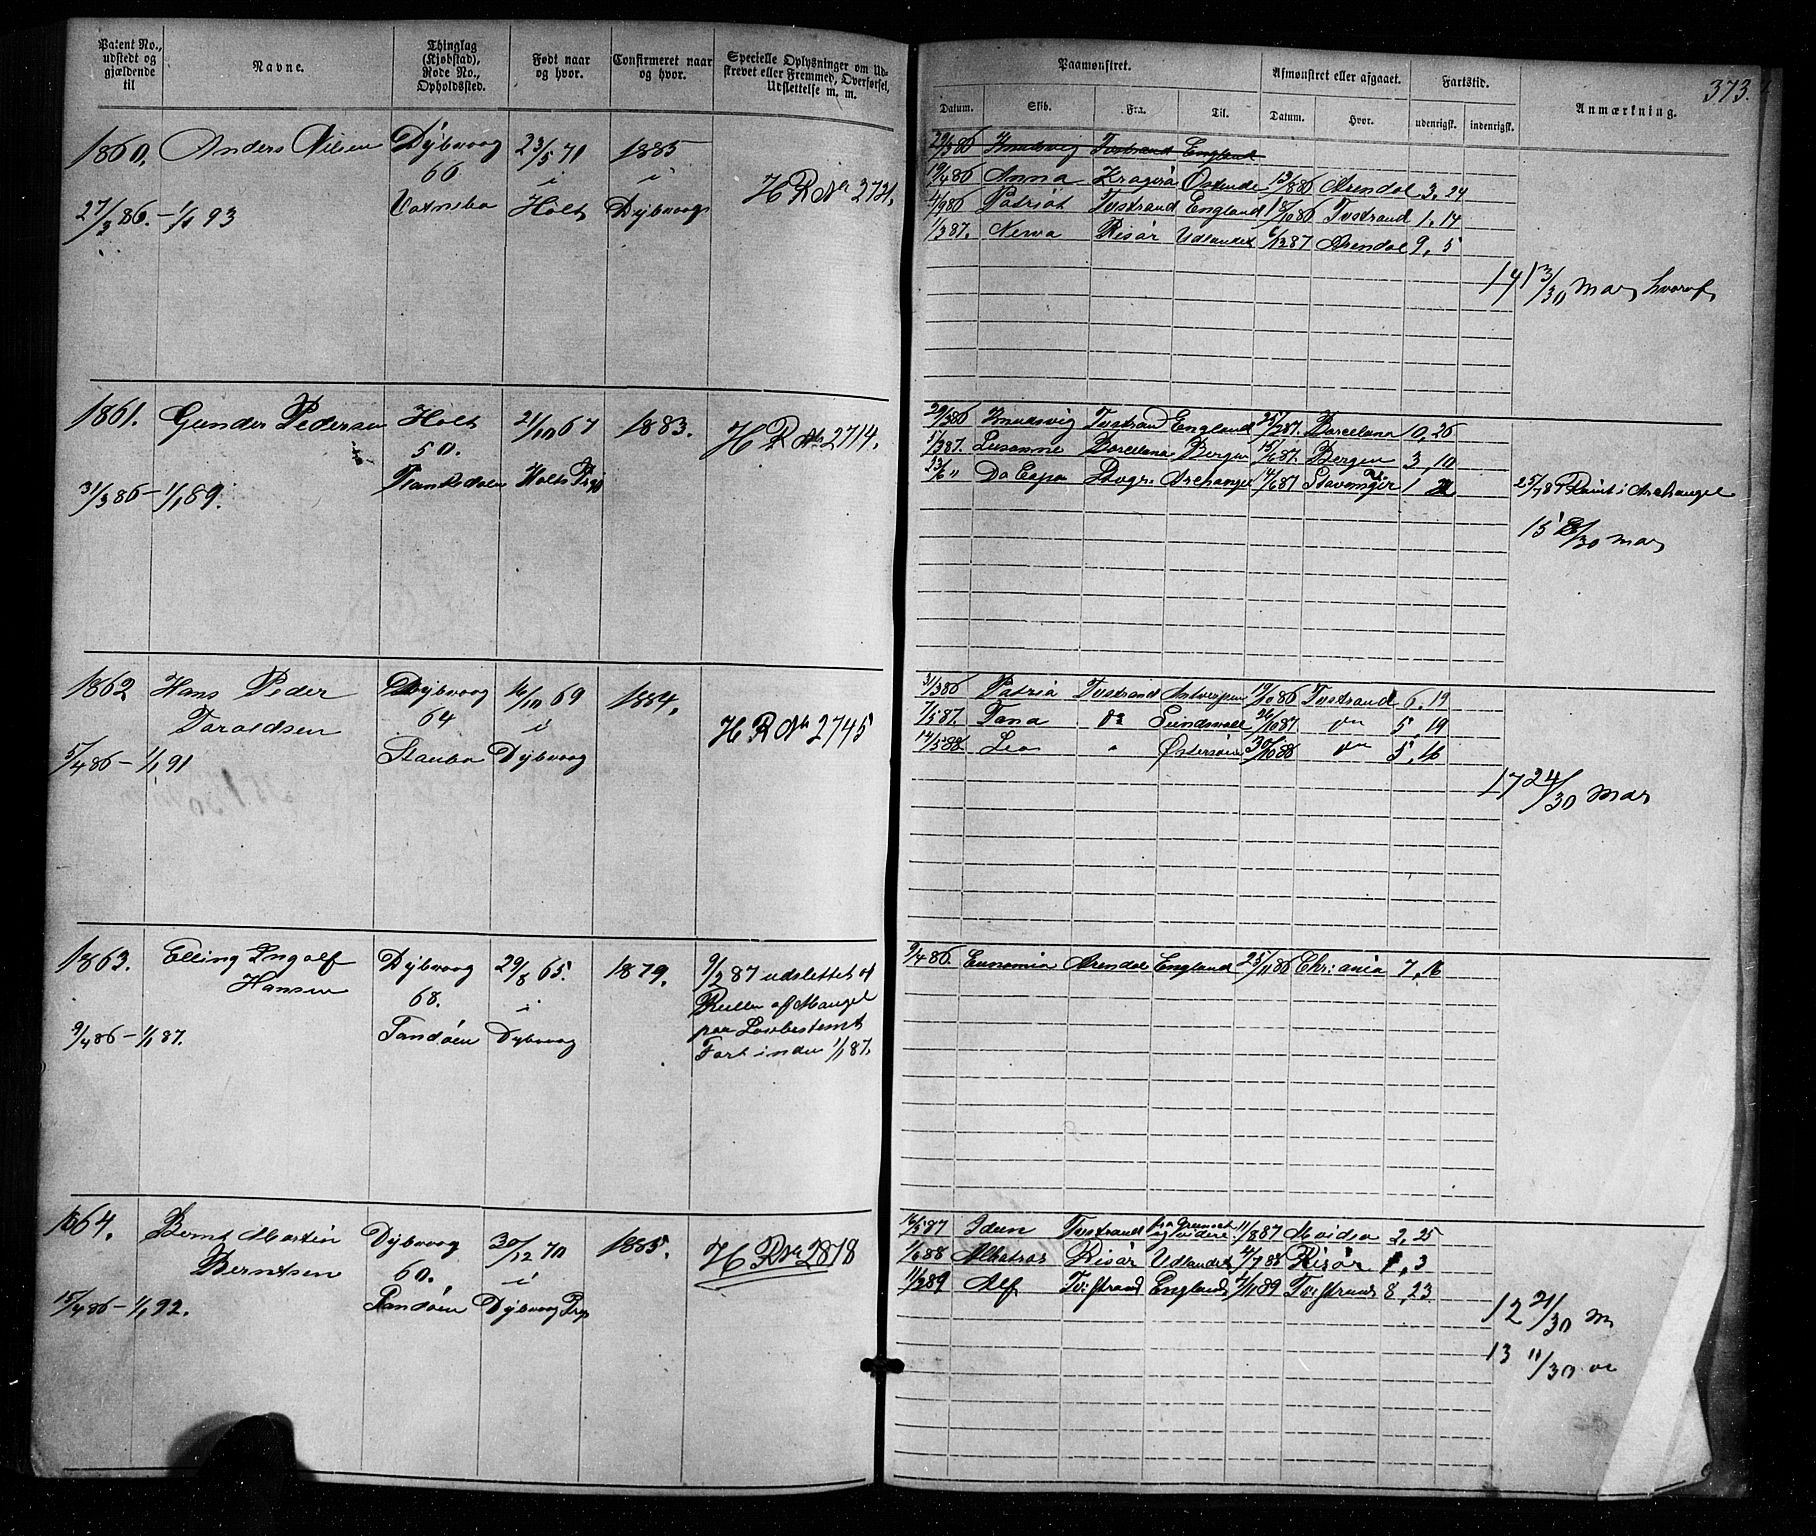 Patent No., udstedt og gjældende til | Navne. | Thinglag (Kjøbstad), Rode No., Opholdssted. | Født naar og hvor. | Confirmeret naar og hvor. | Specielle Oplysninger om Udskrevet eller Fremmed, Overførsel, Udslettelse m. m.
1860. Anders Nilsen Dybvaag 23/5 71 1885
66 i i
H R No 2731.
27/3 86 - 1/1 93 Holt Dybvaag
1861. Gunder Pedersen Holt 21/10 67 1883. H R No 2714.
50.
31/3 86 - 1/1 89. Holts Prgj
1862 Hans Peder Dybvaag 16/10 69 1884.
Taraldsen 64 i H R No 2745
5/4 86 - 1/1 91 Staubø Dybvaag
1863. Elling Ingolf Dybvaag 29/8 65. 1879. 9/2 87 udslettet af
Hansen 68. i Rullen af Mangel
9/4 86 - 1/1 87. Sandøen Dybvaag paa Lovbestemt
Fart inden 1/1 87.
1864. Bernt Martin Dybvaag 30/12 70 1885. H R No 2818
Berntsen 60. i
15/4 86 - 1/1 92. Sandøen Dybvaag Prgj
373.
Paamønstret. | Afmønstret eller afgaaet. | Fartstid. | Anmærkning.
Datum. | Skib. | Fra. | Til. | Datum. | Hvor. | udenrigsk. | indenrigsk.
29/3 86 Knudsvig Tvestrand England
19/4 86 Anna Kragerø Ostende 13/8 86 Arendal 3, 24
4/9 86 Patriot Tvestrand England 18/10 86 Tvestrand 1, 14
1/3 87. Nerva Risør Udlandet 6/12 87 Arendal 9, 5
14 13/30 Mar, hvoraf
29/3 86 Knudsvig Tvestrand England 25/2 87. Barcelona 10, 26
5/3 87. Susanne Barcelona Bergen 15/6 87. Bergen 3, 10
23/6 " Da Capo Archangel Stavanger 1
25/7 87 Rømt i Archangel
15 /30 Mar,
31/3 86 Patria Tvestrand Antwerpen 19/10 86 Tvestrand 6, 19
7/5 87. Tana do Sundsvall 26/10 87 do 5, 19
14/5 88 Leo " Østersøen 30/10 88 do 5, 16
17 24/30 Mar
9/4 86. Eunomia Arendal England 25/11 86 Chr:ania 7, 16
16/5 87 Idun Tvestrand fra Grimset og videre 11/8 87 Moidea 2, 25
1/6 88 Albatros Risør Udlandet 4/7 88 Risør 1, 3
11/2 89 Alf Tvestrand England 4/11 89 Tvestrand 8, 23
12 21/30 M
13 11/30